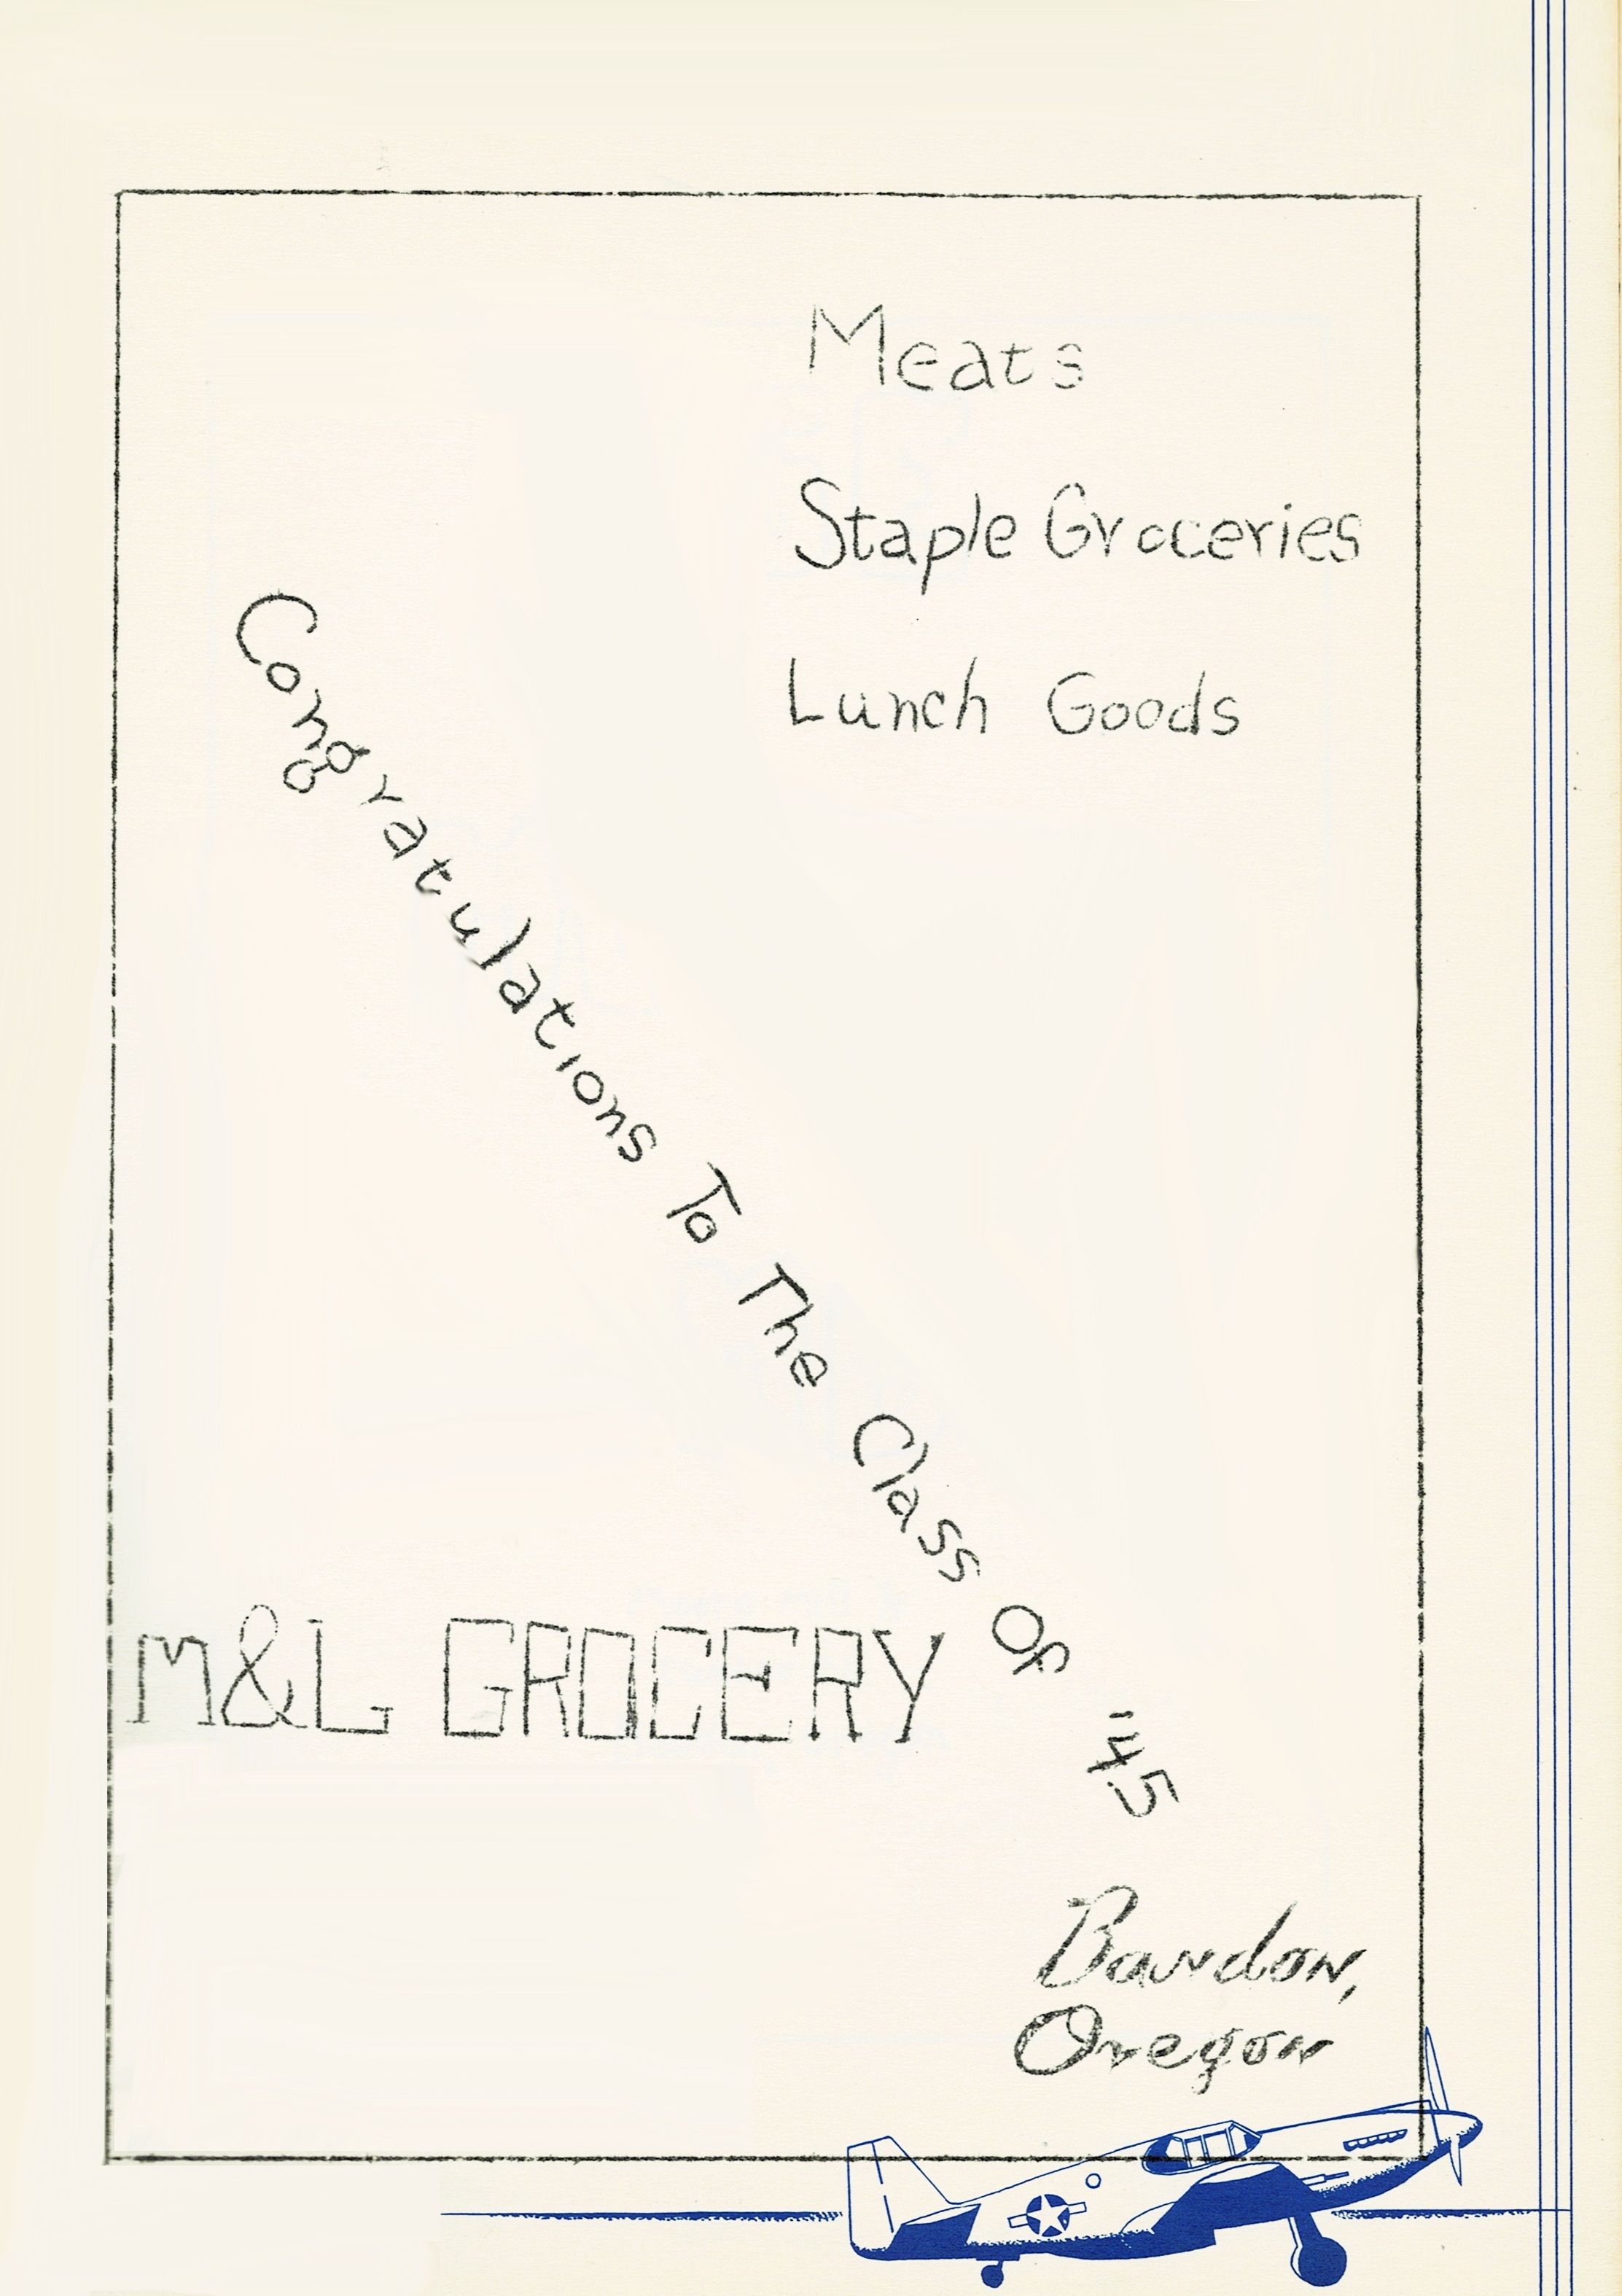 Meats
Staple Groceries
Lunch Goods
Congratulations To The Class Of "45
M&L GROCERY
Bandon,
Oregon